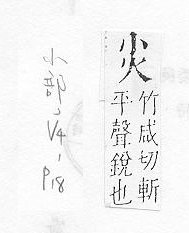 竹咸切斬
平聲銳也
小部
P18